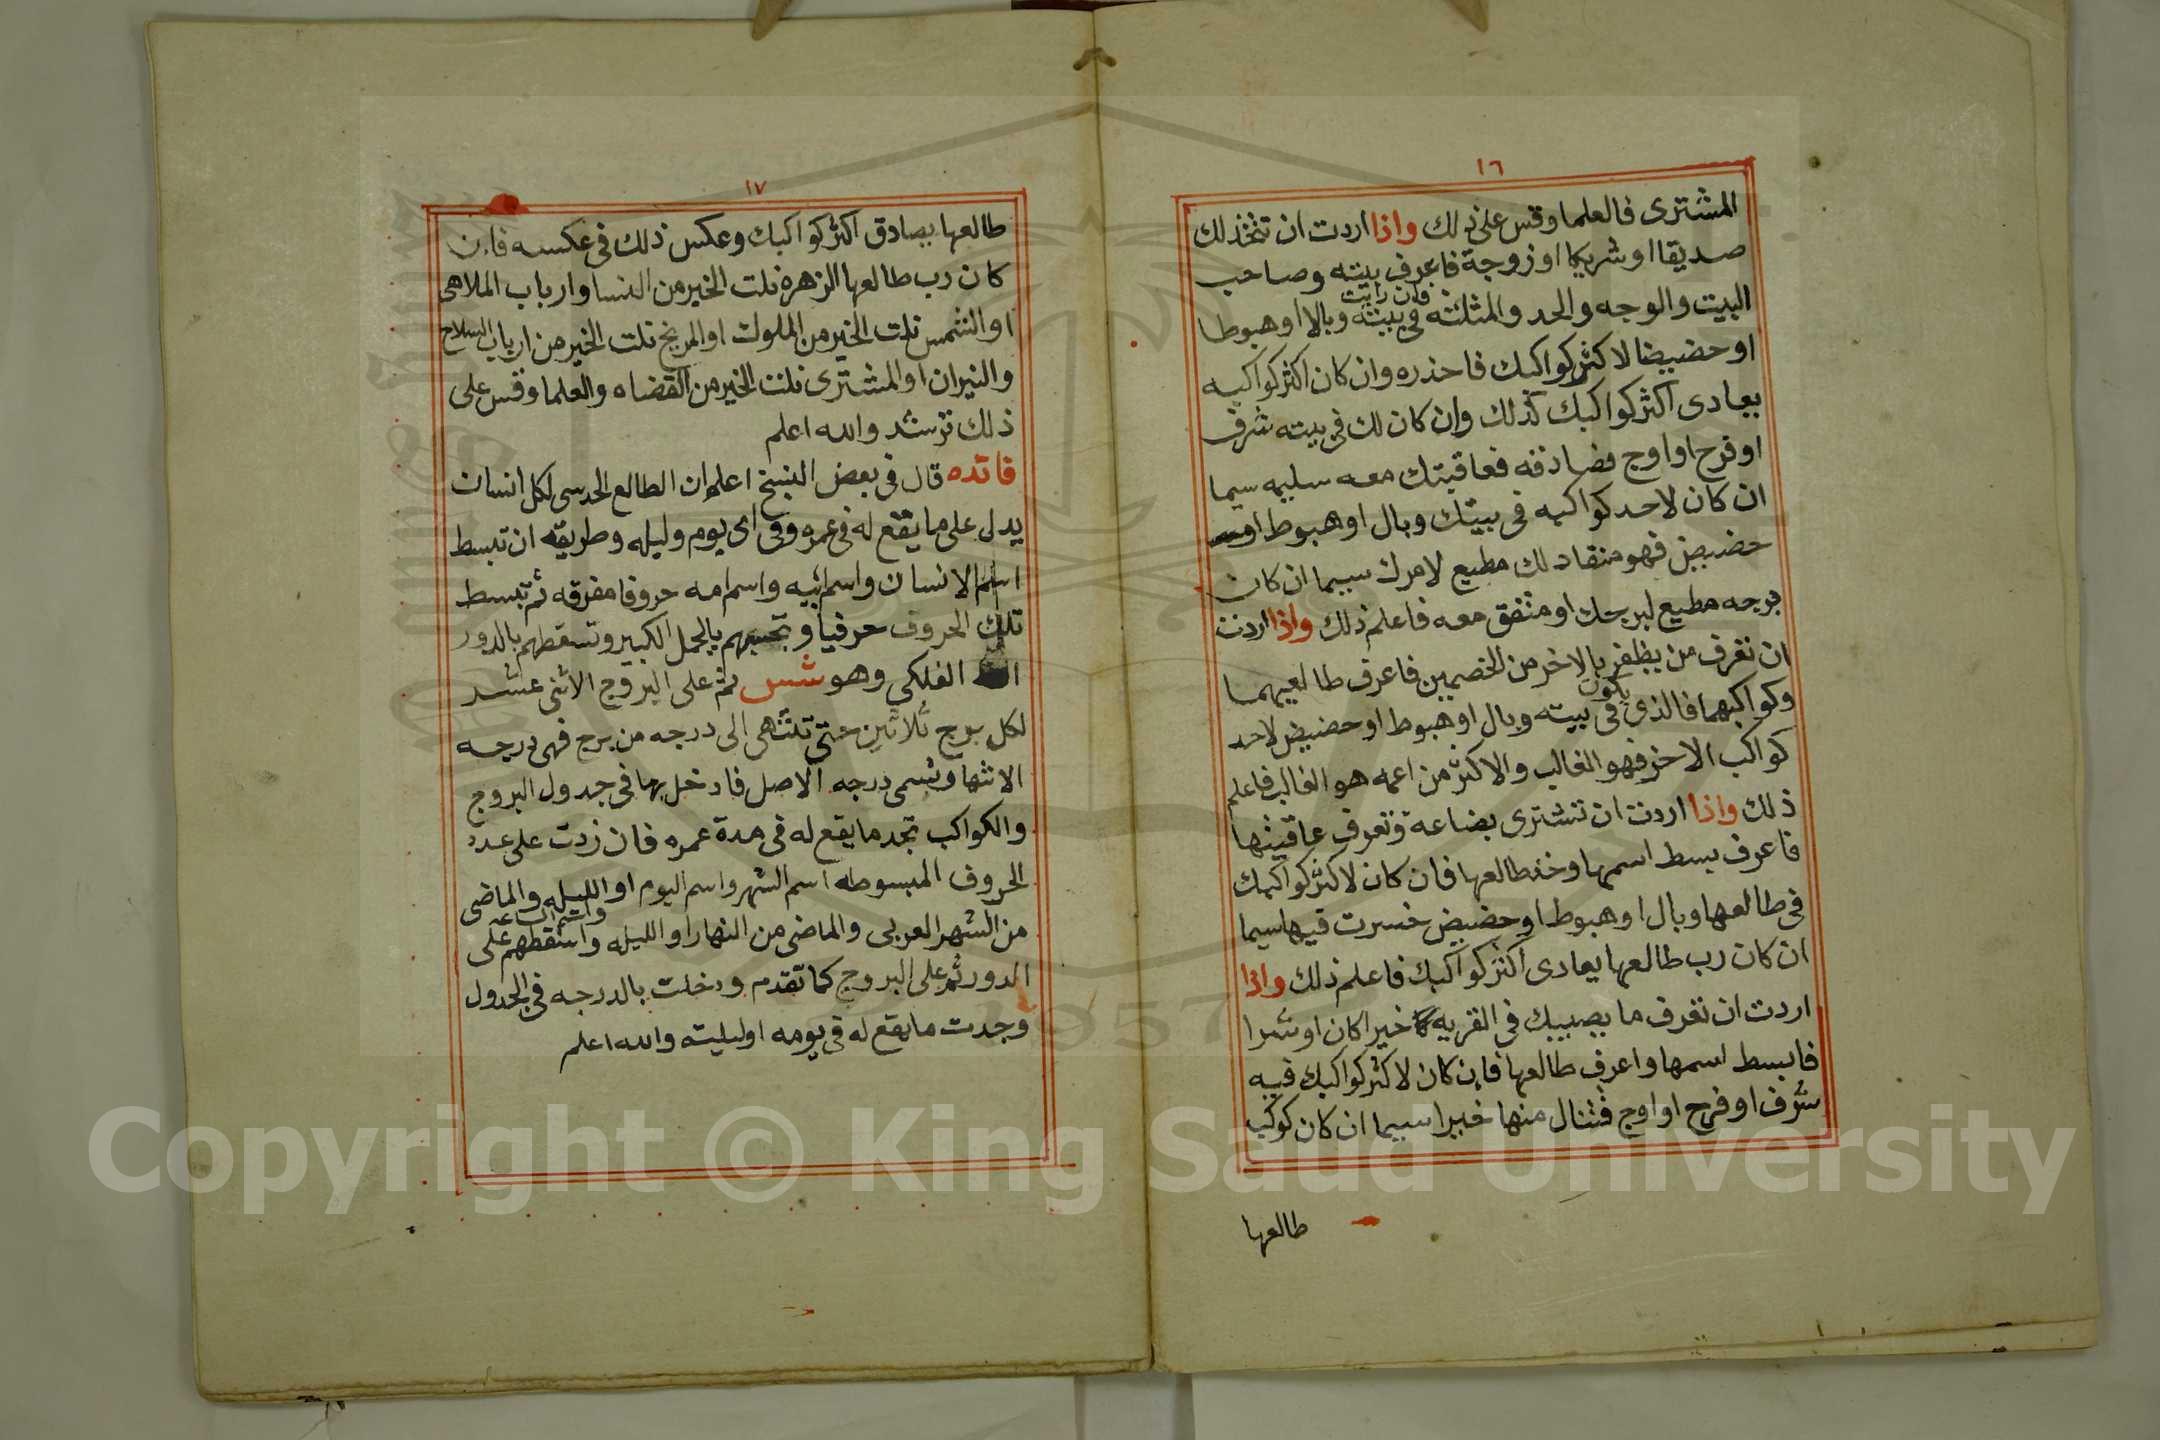 ١٦
المشترى فالعلما وقس على ذلك واذا اردت ان تتخذ لك
صديقا او شريكا او زوجة فاعرف بيته وصاحب
البيت والوجه والحد والمثلثه فان رايت فى بيته وبالا او هبوطا
او حضيضا لاكثر كواكبك فاحذره وان كان اكثر كواكبه
يعادى اكثر كواكبك كذلك وان كان لك فى بيته شرف
او فرح او اوج فصادفه فعاقبتك معه سليمه سيما
ان كان لاحد كواكبه فى بيتك وبال او هبوط او
حضيض فهو منقاد لك مطيع لامرك سيما ان كان
برجه مطيع لبرجك او متفق معه فاعلم ذلك واذا اردت
ان تعرف من يظفر بالاخر من الخصمين فاعرف طالعيهما
وكواكبهما فالذى يكون فى بيته وبال او هبوط او حضيض لاحد
كواكب الاخر فهو الغالب والاكثر من اعمه هو الغالب فاعلم
ذلك واذا اردت ان تشترى بضاعة وتعرف عاقبتها
فاعرف بسط اسمها وخذ طالعها فان كان لاكثر كواكبك
فى طالعها وبال او هبوط او حضيض خسرت فيها سيما
ان كان رب طالعها يعادى اكثر كواكبك فاعلم ذلك واذا
اردت ان تعرف ما يصيبك فى القريه خيرا كان او شرا
فابسط اسمها واعرف طالعها فان كان لاكثر كواكبك فيه
شرف او فرح او اوج فتنال منها خيرا سيما ان كان كوكب
طالعها
١٧
طالعها يصادق اكثر كواكبك وعكس ذلك فى عكسه فان
كان رب طالعها الزهره نلت الخير من النسا وارباب الملاهى
او الشمس نلت الخير من الملوك او المريخ نلت الخير من ارباب السلاح
والنيران او المشترى نلت الخير من القضاه والعلما وقس على
ذلك ترشد والله اعلم
فائده قال فى بعض النسخ اعلم ان الطالع الحدسى لكل انسان
يدل على ما يقع له فى عمره وفى اى يوم وليله وطريقه ان تبسط
اسم الانسان واسم ابيه واسم امه حروفا مفرقه ثم تبسط
تلك الحروف حرفيا وتحسبهم بالجمل الكبير وتسقطهم بالدور
الفلكى وهو شس ثم على البروج الاثنى عشر
لكل برج ثلاثين حتى تنتهى الى درجه من برج فهى درجه
الانتها وتسمى درجه الاصل فادخل بها فى جدول البروج
والكواكب تجد ما يقع له فى مدة عمره فان زدت على عدد
الحروف المبسوطه اسم الشهر واسم اليوم او الليله والماضى
من الشهر العربى والماضى من النهار او الليله واسم الساعه واسقطهم على
الدور ثم على البروج كما تقدم ودخلت بالدرجه فى الجدول
وجدت ما يقع له فى يومه او ليلته والله اعلم
Copyright © King Saud University
1957